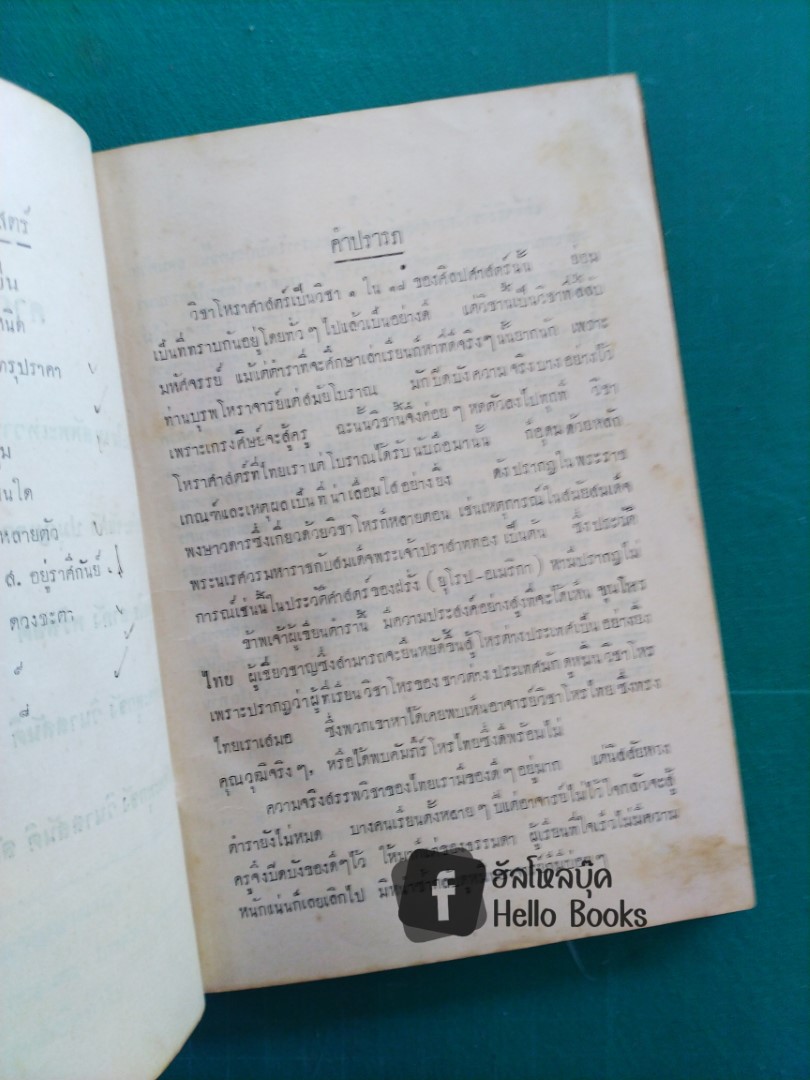 สตร์
คำปรารภ
วิชาโหราศาสตร์เป็นวิชา ๑ ใน ๑๘ ของศิลปศาสตร์นั้น ย่อม
เป็นที่ทราบกันอยู่โดยทั่วๆ ไปแล้วเป็นอย่างดี แต่วิชานี้เป็นวิชาที่ลี้ลับ
มหัศจรรย์ แม้แต่ตำราที่จะศึกษาเล่าเรียนก็หาที่ดีจริงๆ นั้นยากนัก เพราะ
ท่านบุรพโหราจารย์แต่สมัยโบราณ มักปิดบังความจริงบางอย่างไว้
เพราะเกรงศิษย์จะสู้ครู ฉะนั้นวิชานี้จึงค่อยๆ หดตัวลงไปทุกที วิชา
โหราศาสตร์ที่ไทยเราแต่โบราณได้รับนับถือมานั้น ก็อุดมด้วยหลัก
เกณฑ์และเหตุผลเป็นที่น่าเลื่อมใสอย่างยิ่ง ดังปรากฏในพระราช
พงษาวดารซึ่งเกี่ยวด้วยวิชาโหรก็หลายตอน เช่นเหตุการณ์ในสมัยสมเด็จ
พระนเรศวรมหาราชกับสมเด็จพระเจ้าปราสาททอง เป็นต้น ซึ่งประวัติ
การณ์เช่นนี้ในประวัติศาสตร์ของฝรั่ง (ยุโรป-อเมริกา) หามีปรากฏไม่
ข้าพเจ้าผู้เขียนตำรานี้ มีความประสงค์อย่างสูงที่จะได้เห็น ขุนโหร
ไทย ผู้เชี่ยวชาญซึ่งสามารถจะยืนหยัดขึ้นสู้ โหรต่างประเทศเป็นอย่างยิ่ง
เพราะปรากฏว่าผู้ที่เรียนวิชาโหรของชาวต่างประเทศมักดูหมิ่นวิชาโหร
ไทยเราเสมอ ซึ่งพวกเขาหาได้เคยพบเห็นอาจารย์วิชาโหรไทย ซึ่งทรง
คุณวุฒิจริงๆ, หรือได้พบคัมภีร์โหรไทยซึ่งดีพร้อมไม่
ความจริงสรรพวิชาของไทยเรามีของดีๆ อยู่มาก แต่นิสสัยหวง
ตำรายังไม่หมด บางคนเรียนตั้งหลายๆ ปีแต่อาจารย์ไม่ไว้ใจกลัวจะสู้
ครูจึงปิดบังของดีๆ ไว้ ของธรรมดา ผู้เรียนที่ใจเร็วไม่มีความ
หนักแน่นก็เลยเลิกไป
นิด
ครุปราคา
หลายตัว
ส. อยู่ราศีกันย์
ดวงชะตา
ฮัลโหลบุ๊ค
Hello Books